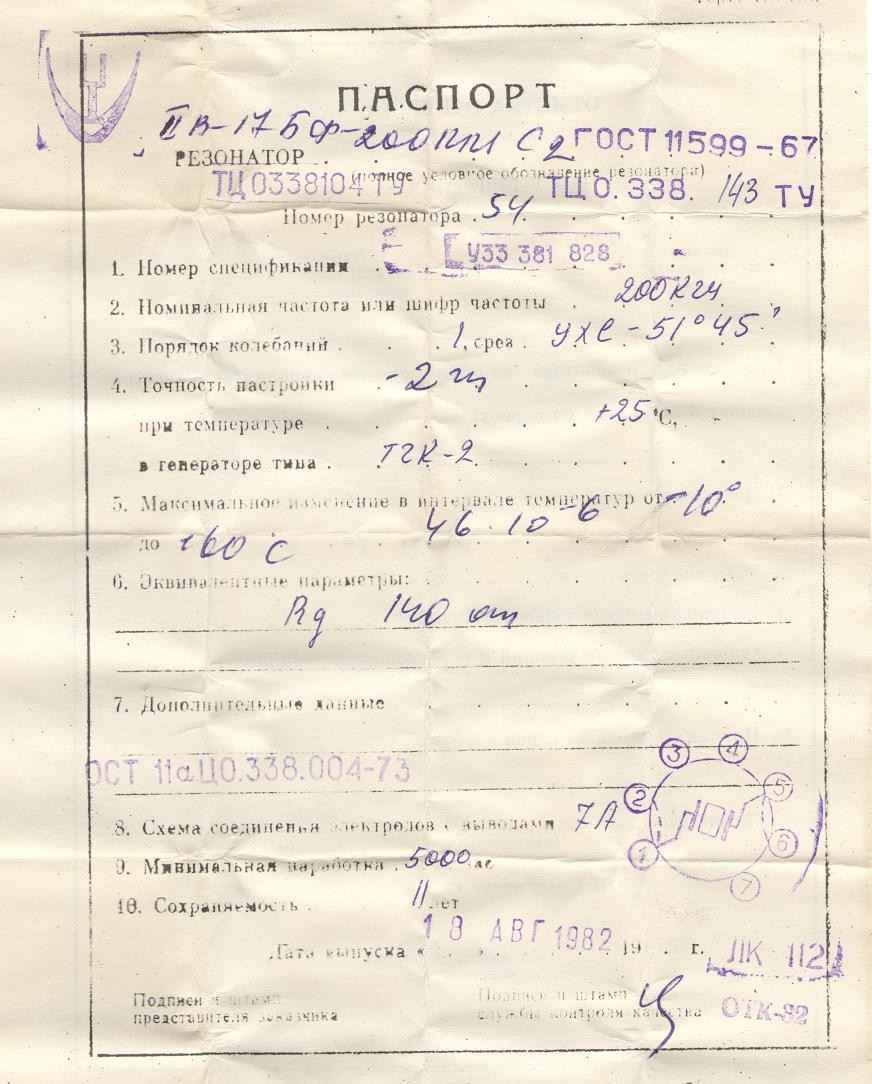 ПАСПОРТ
РЕЗОНАТОР IIВ-17БФ-200КГЦ С2 ГОСТ 11599-67
(полное условное обозначение резонатора)
ТЦ0338104ТУ ТЦ0.338. 143 ТУ
Номер резонатора 54
1. Номер спецификации У33 381 828
2. Номинальная частота или шифр частоты 200кгц
3. Порядок колебаний 1, срез УХС-51°45'
4. Точность настройки -2 гц
при температуре +25 °С,
в генераторе типа ТГК-2
5. Максимальное изменение в интервале температур от -10°
до +60 С 46·10-6
6. Эквивалентные параметры:
Rд 140 ом
7. Дополнительные данные
ОСТ 11аЦ0.338.004-73
3 4
2 5
8. Схема соединения электродов с выводами 7А
1 6
7
9. Минимальная наработка 5000
10. Сохраняемость 11 лет
Дата выпуска « 18 АВГ 1982 19 г. ЛК 112
Подписи и штамп
представителя заказчика
Подписи и штамп
службы контроля качества ОТК-82